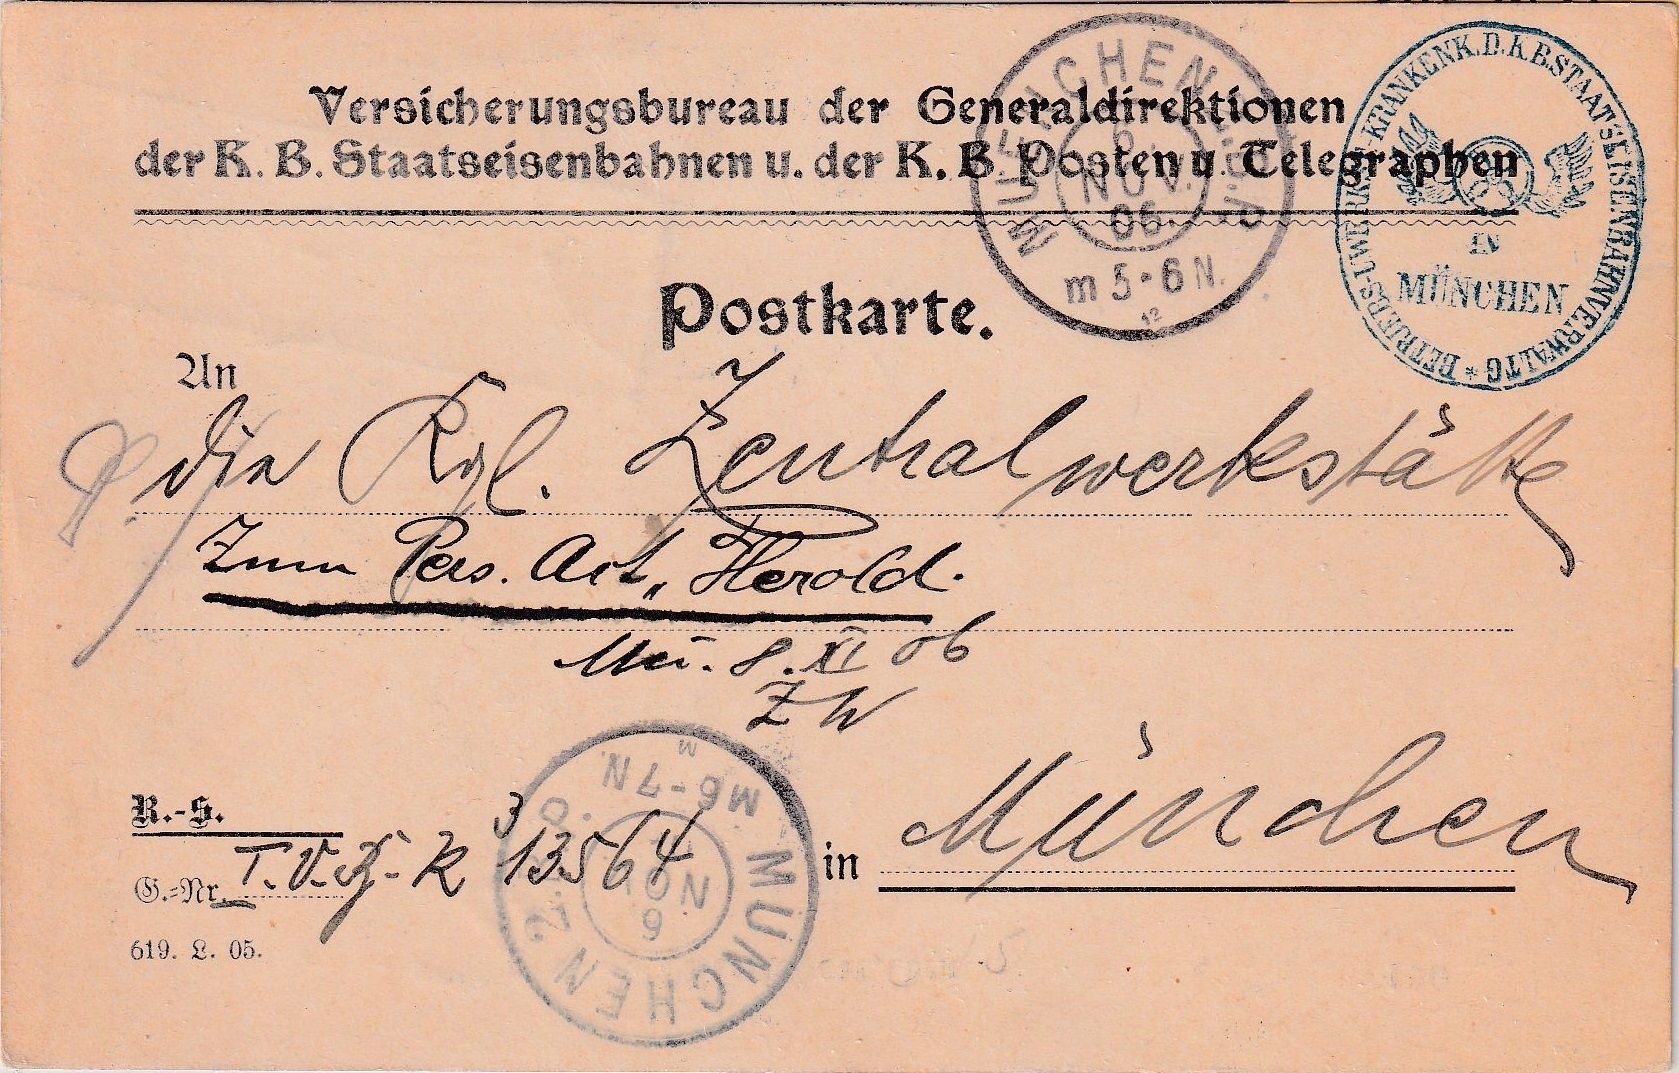 Versicherungsbureau der Generaldirektionen
der K. B. Staatseisenbahnen u. der K. B. Posten u. Telegraphen
MUENCHEN
6
NOV.
06
m 5-6 N.
12
BETRIEBS-U.WERKST.-KRANKENK.D.K.B.STAATSEISENBAHNVERWALTG *
IN
MÜNCHEN
Postkarte.
An
die Kgl. Zentralwerkstätte
Zum Pers. Act. Herold.
Mü. 8. XI 06
ZW
R.-S.
G.-Nr. T. V. K. 13564
in München
619. L. 05.
MÜNCHEN 2. B.O.
M6-7N.
NOV